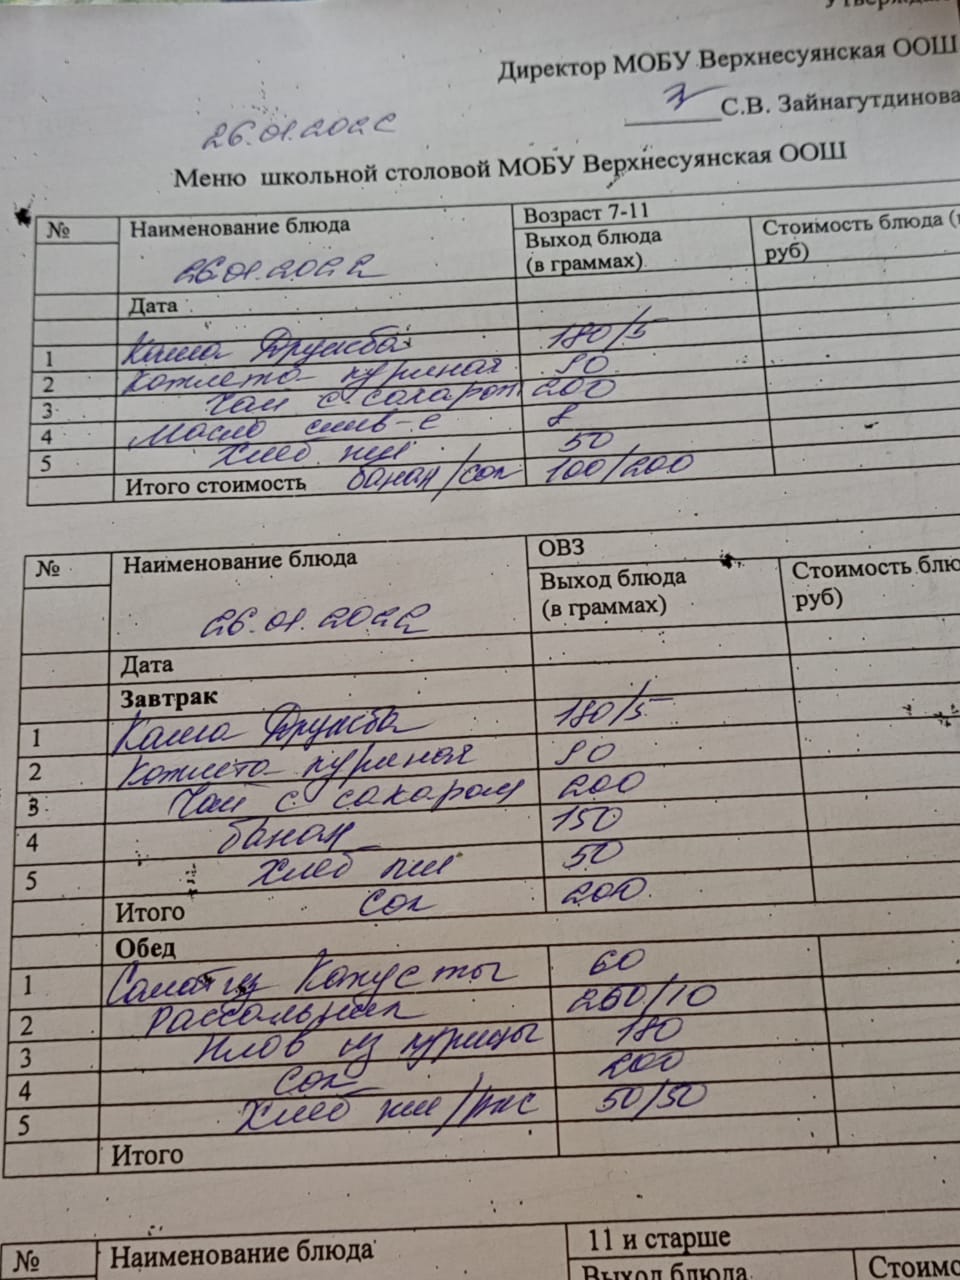 Утвержда
Директор МОБУ Верхнесуянская ООШ
С.В. Зайнагутдинова
26.01.2022
Меню школьной столовой МОБУ Верхнесуянская ООШ
№ Наименование блюда Возраст 7-11
Выход блюда (в граммах) Стоимость блюда ( руб)
26.01.2022
Дата
1 Каша Дружба 180/5
2 Котлета куриная 90
3 Чай с сахаром 200
4 Масло слив-е 8
5 Хлеб пш 50
Итого стоимость банан/сок 100/200
№ Наименование блюда ОВЗ
Выход блюда (в граммах) Стоимость блю руб)
26.01.2022
Дата
Завтрак
1 Каша Дружба 180/5
2 Котлета куриная 90
3 Чай с сахаром 200
4 банан 150
5 Хлеб пш 50
Итого Сок 200
Обед
1 Салат из Капусты 60
2 Рассольник 260/10
3 Плов из курицы 180
4 Сок 200
5 Хлеб пш/рж 50/50
Итого
№ Наименование блюда 11 и старше
Выход блюда Стоимо